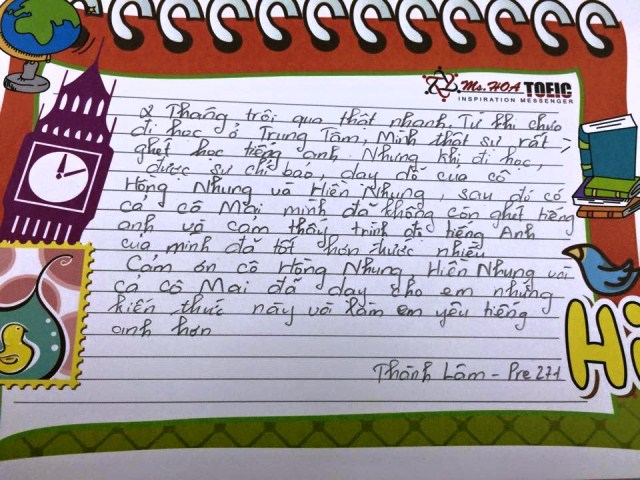 Ms. HOA TOEIC
INSPIRATION MESSENGER
2 Tháng trôi qua thật nhanh. Từ khi chưa
đi học ở Trung Tâm, Mình thật sự rất
ghét học tiếng anh. Nhưng khi đi học,
được sự chỉ bảo, dạy dỗ của cô
Hồng Nhung và Hiền Nhung, sau đó có
cả cô Mai mình đã không còn ghét tiếng
anh và cảm thấy trình độ tiếng Anh
của mình đã tốt hơn trước nhiều
Cảm ơn cô Hồng Nhung, Hiền Nhung và
cả cô Mai đã dạy cho em những
kiến thức này và làm em yêu tiếng
anh hơn
Thành Lâm - Pre 271
Hi